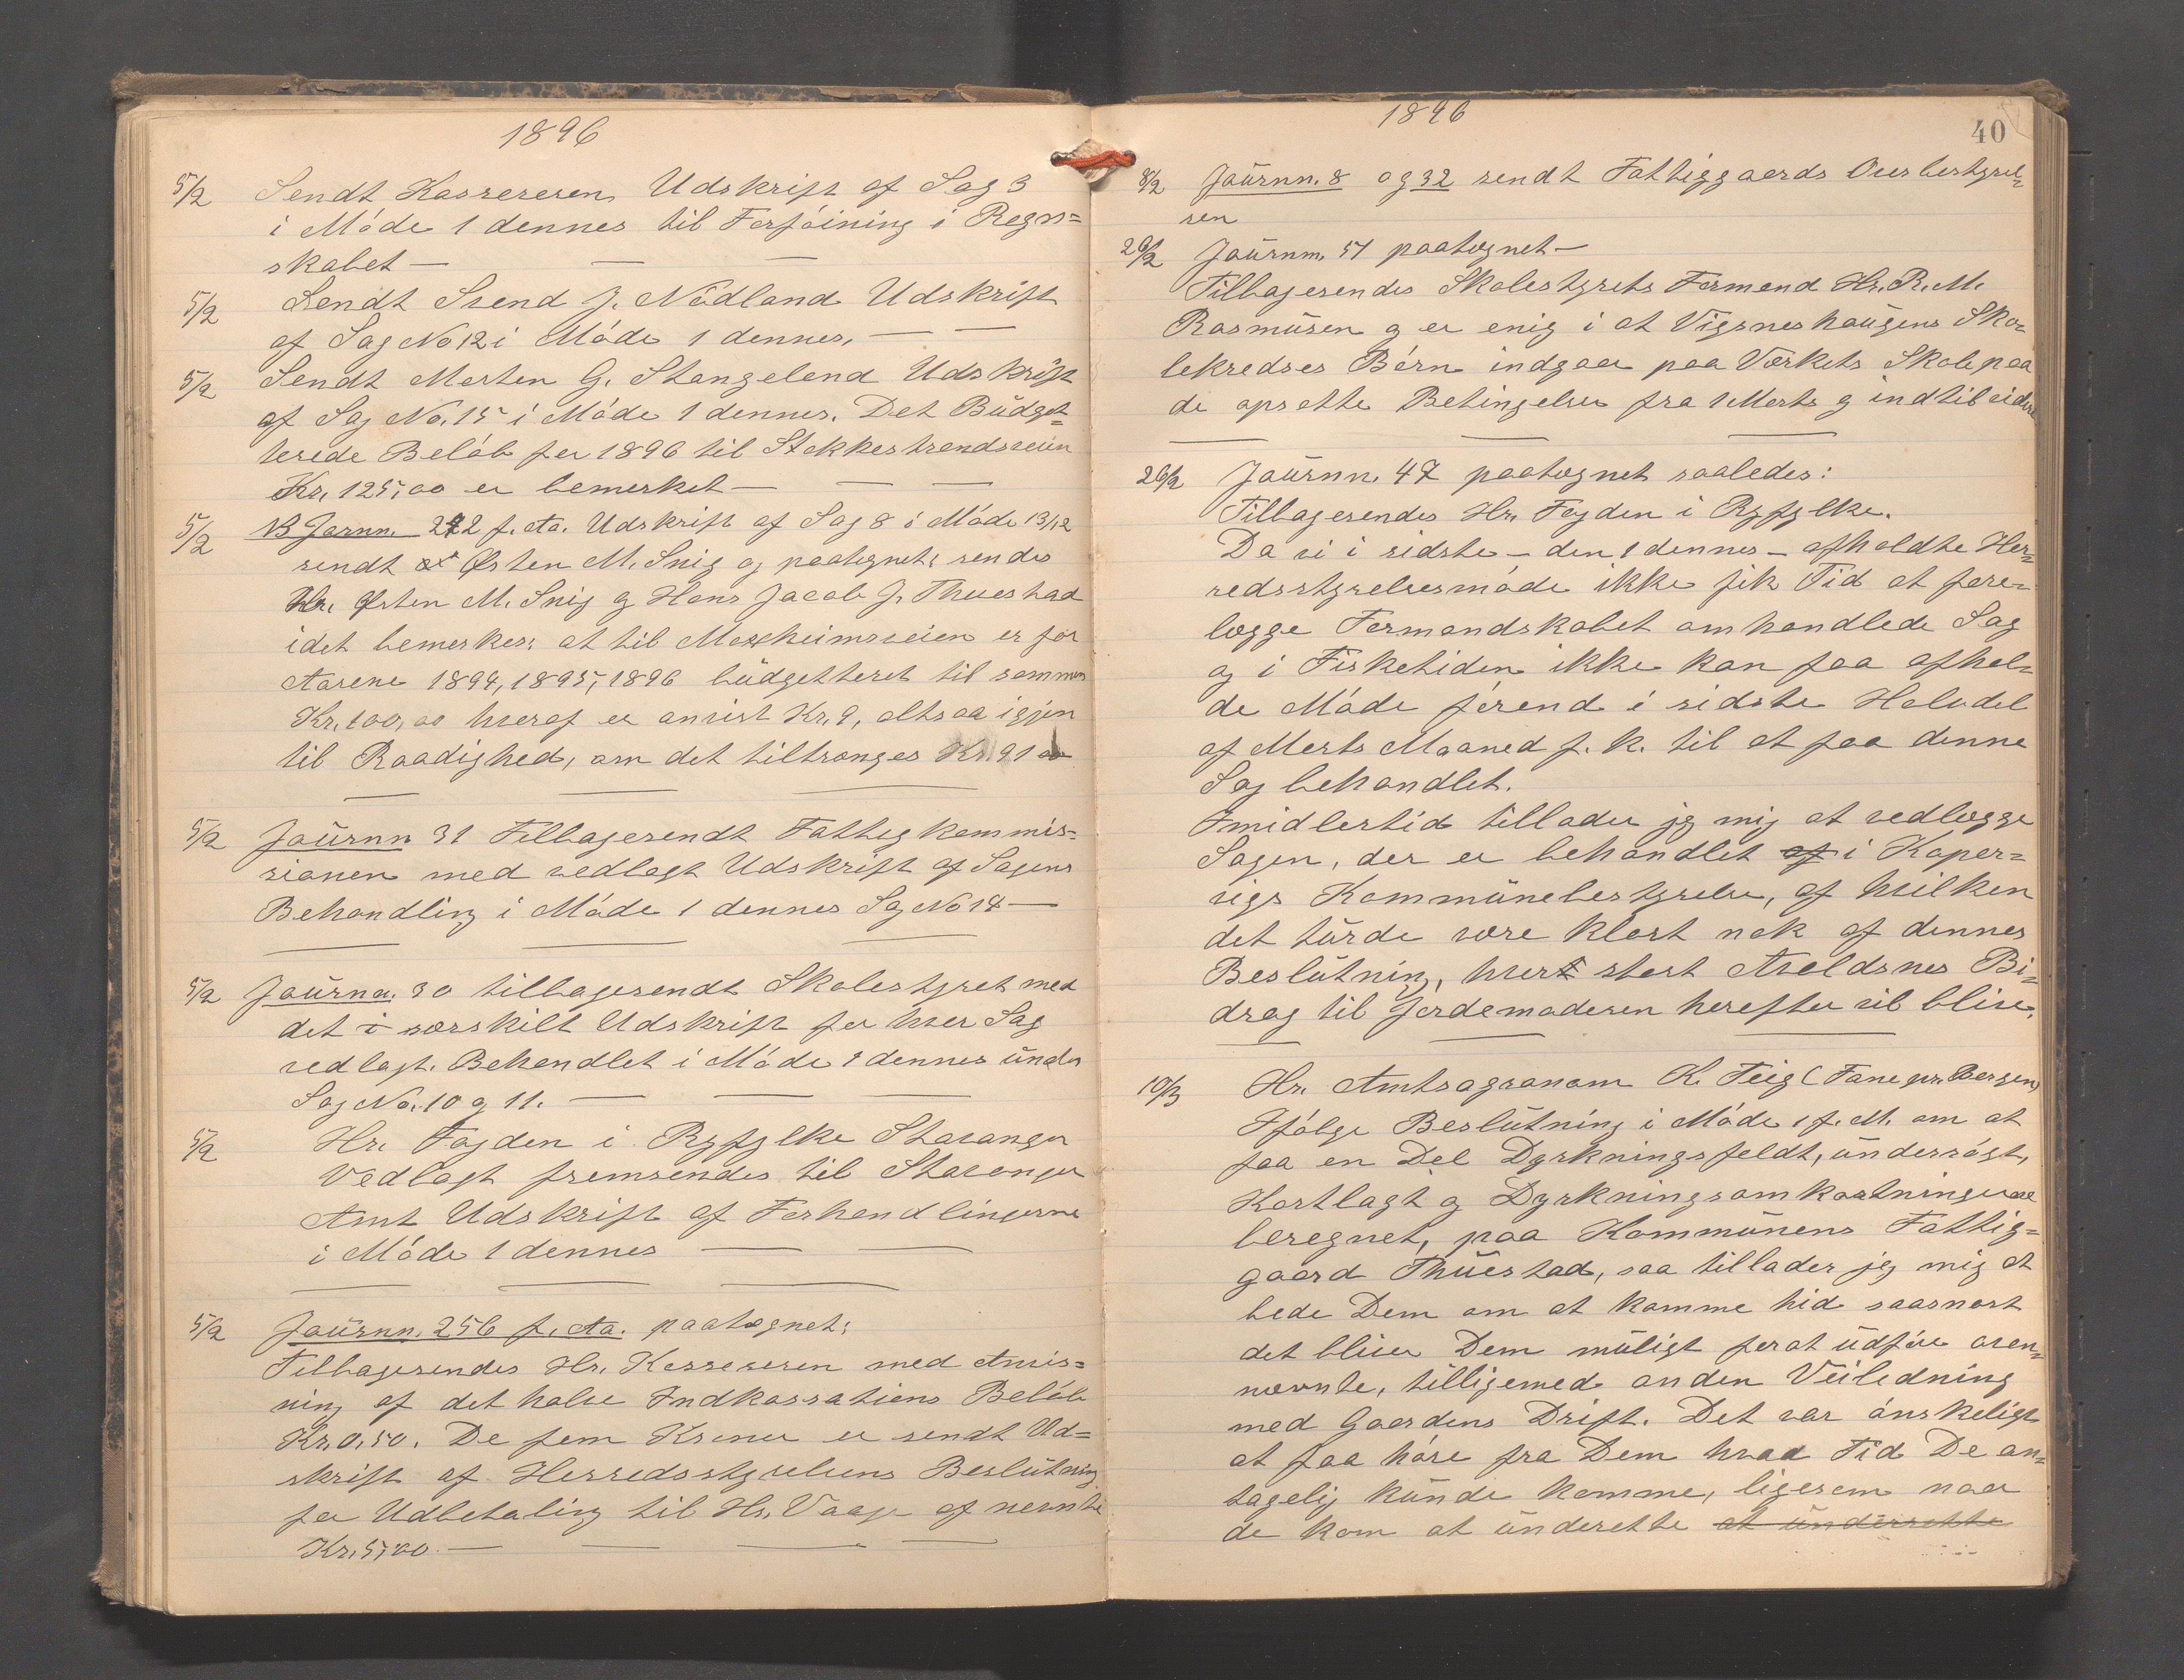 1896
5/2 Sendt Kassereren Udskrift af Sag 3
i Möde 1 dennes til Forföining i Regn=
skabet —
5/2 Sendt Svend J. Nådland Udskrift
af Sag No 12 i Möde 1 dennes. —
5/2 Sendt Morten G. Stangeland Udskrift
af Sag No. 15 i Möde 1 dennes. Det Büdget=
terede Belöb for 1896 til Stokkestrandsveien
Kr. 125,00 er bemerket —
5/2 NB Jornn. 272 f. Aa. Udskrift af Sag 8 i Möde 13/12
sendt Østen M. Snig og paategnet: sendes
Hr. Østen M. Snig og Hans Jacob J. Thuestad
idet bemerkes: at til Moksheimsveien er for
Aarene 1894, 1895, 1896 büdgetteret til sammen
Kr. 100,00 hvoraf er anvist Kr. 9, altsaa igjen
til Raadighed, om det tiltrænges Kr. 91 00
5/2 Joürnn 31 Tilbagesendt Fattigkommis=
sionen med vedlagt Udskrift af Sagens
Behandling i Möde 1 dennes Sag No 14 —
5/2 Joürnn. 30 tilbagesendt Skolestyret med
det i særskilt Udskrift for hver Sag
vedlagt. Behandlet i Möde 1 dennes ünder
Sag No. 10 og 11. —
5/2 Hr. Fogden i Ryfylke Stavanger
Vedlagt fremsendes til Stavanger
Amt Udskrift af Forhandlingerne
i Möde 1 dennes —
5/2 Joürnn. 256 f. Aa. paategnet:
Tilbagesendes Hr. Kassereren med Anvis=
ning af det halve Indkassations Belöb
Kr. 0,50. De fem Kroner er sendt Ud=
skrift af Herredsstyrelsens Beslütning
for Udbetaling til Hr. Vaage af nevnte
Kr. 5,00 —
1896
40
8/2 Joürnn. 8 og 32 sendt Fattiggaards Overbestyrel=
sen
20/2 Joürnn. 51 paategnet —
Tilbagesendes Skolestyrets Formand Hr. R. M.
Rasmüsen og er enig i at Vigsneshaügens Sko=
lekredses Börn indgaar paa Værkets Skole paa
de opsatte Betingelser fra 1 Marts og indtil videre
26/2 Joürnn. 47 paategnet saaledes:
Tilbagesendes Hr. Fogden i Ryfylke.
Da vi i sidste — den 1 dennes — afholdte Her=
redsstyrelsesmöde ikke fik Tid at fore=
lægge Formandskabet omhandlede Sag
og i Fisketiden ikke kan faa afhol=
de Möde förend i sidste Halvdel
af Marts Maaned f. k. til at faa denne
Sag behandlet.
Imidlertid tillader jeg mig at vedlægge
Sagen, der er behandlet af i Koper=
vigs Kommünebestyrelse, af hvilken
det türde være klart nok af dennes
Beslütning, hvor stort Avaldsnes Bi=
drag til Jordemoderen herefter vil blive.
10/3 Hr. Amtsagronom K. Teig (Fane pr. Bergen)
Ifölge Beslütning i Möde 1 f. M. om at
faa en Del Dyrkningsfeldt, ündersögt,
Kartlagt og Dyrkningsomkostningerne
beregnet, paa Kommünens Fattig=
gaard Thüestad, saa tillader jeg mig at
bede Dem om at komme hid saasnart
det bliver Dem müligt for at üdföre oven=
nævnte, tilligemed anden Veiledning
med Gaardens Drift. Det var önskeligt
at faa höre fra Dem hvad Tid De an=
tagelig künde komme, ligesom naar
de kom at ünderette at ünderrette